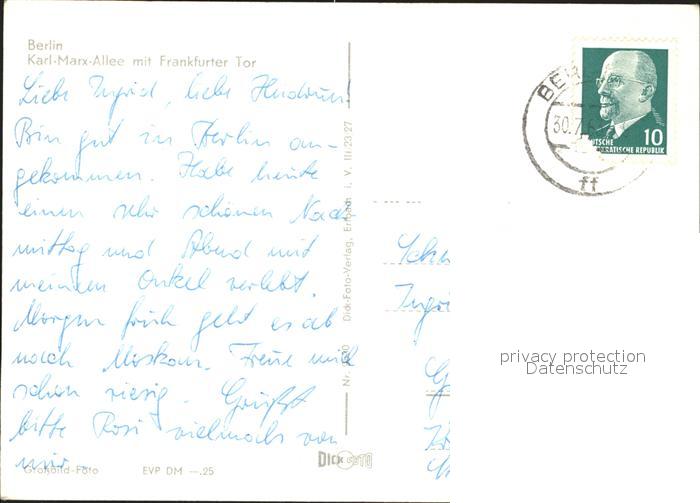 Berlin
Karl-Marx-Allee mit Frankfurter Tor
Liebe Ingrid, liebe Heidrun!
Bin gut in Berlin an-
gekommen. Habe heute
einen sehr schönen Nach
mittag und Abend mit
meinem Onkel verlebt.
Morgen früh geht es ab
nach Moskau. Freue mich
schon riesig. Grüßt
bitte Rosi vielmals von
mir.
Großbild-Foto EVP DM —.25
Dick-Foto-Verlag, Erlbach i. V. III/23/27
DICK FOTO
BER
30.7.6
ff
10
DEUTSCHE
DEMOKRATISCHE REPUBLIK
Schw
Ingri
privacy protection
Datenschutz